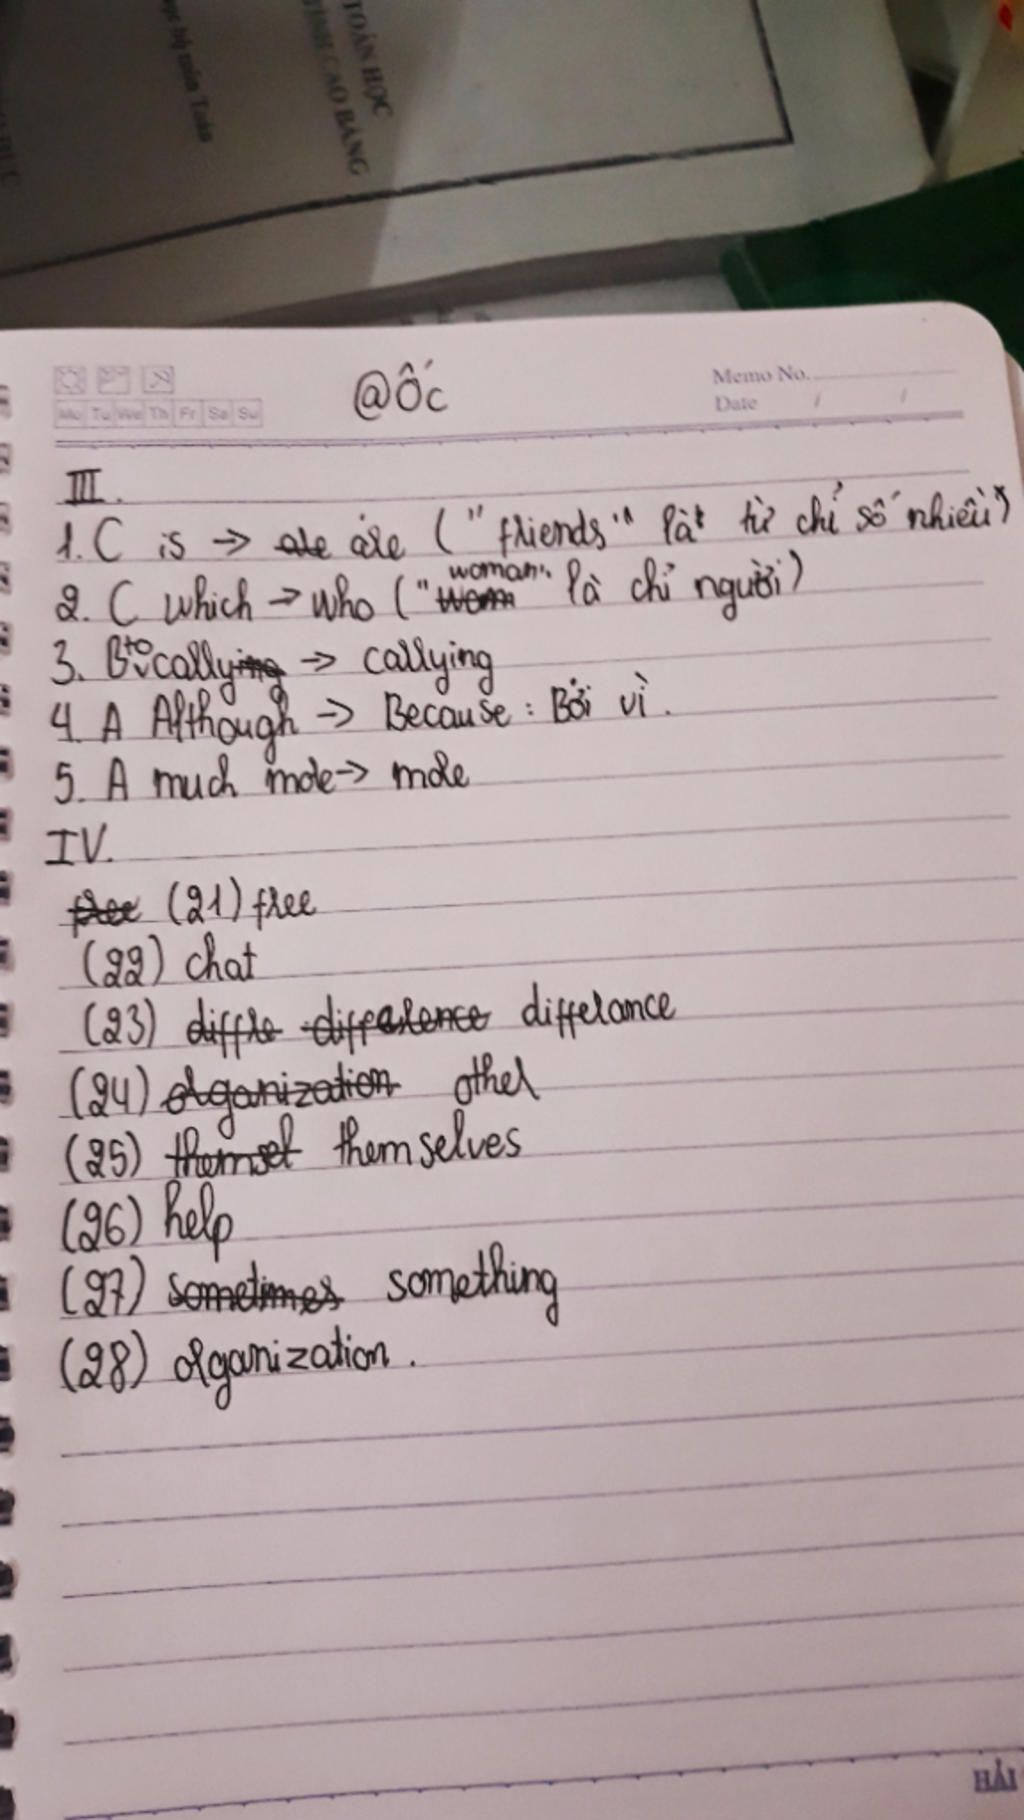 TOÁN HỌC
TỈNH CAO BẰNG
bộ môn Toán
@ốc
Memo No.
Date / /
Mo Tu We Th Fr Sa Su
III.
1. C is → are are ("friends" là từ chỉ số nhiều)
2. C which → who ("wom woman" là chỉ người)
3. B to callying → callying
4. A Although → Because : Bởi vì.
5. A much more → more
IV.
free (21) free
(22) chat
(23) diffre difference differance
(24) organization other
(25) themsel themselves
(26) help
(27) sometimes something
(28) organization.
HẢI